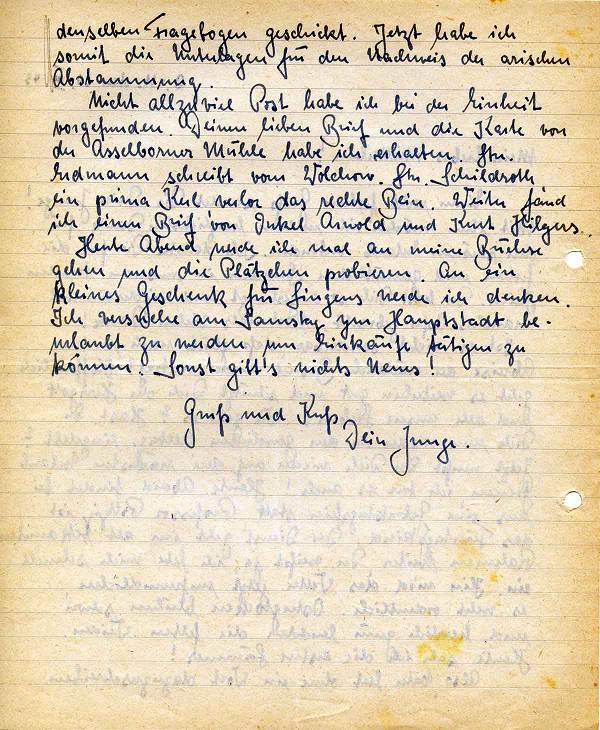 denselben Fragebogen geschickt. Jetzt habe ich
somit die Unterlagen für den Nachweis der arischen
Abstammung.
Nicht allzuviel Post habe ich bei der Einheit
vorgefunden. Deinen lieben Brief und die Karte von
der Asselborner Mühle habe ich erhalten. Gfr.
Erdmann schreibt vom Wolchow. Gfr. Schildroth
ein prima Kerl verlor das rechte Bein. Weiter fand
ich einen Brief von Onkel Arnold und Kurt Hilgers.
Heute Abend werde ich mal an meine Büchse
gehen und die Plätzchen probieren. An ein
kleines Geschenk für Lingens werde ich denken.
Ich versuche am Samstag zur Hauptstadt be-
urlaubt zu werden um Einkäufe tätigen zu
können. Sonst gibt's nichts Neues!
Gruß und Kuß
Dein Junge.